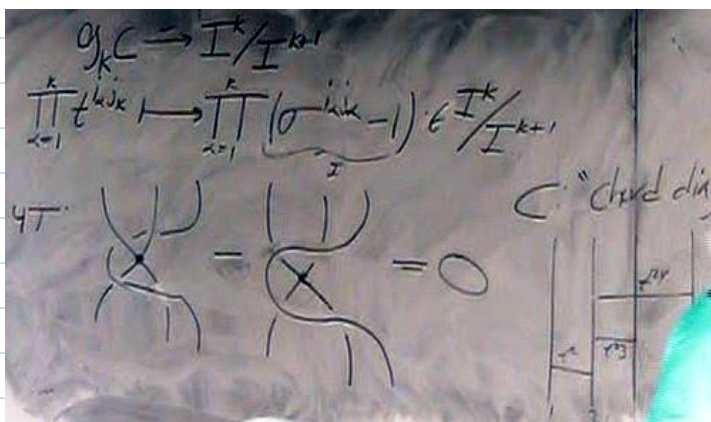 g_k C → I^k/I^{k+1}
∏_{α=1}^k t^{i_α j_α} ↦ ∏_{α=1}^k (σ^{i_α j_α} - 1) ∈ I^k/I^{k+1}
I
4T
- = 0
C: "Chord
t^{24}
t^{12} t^{23}
1 2